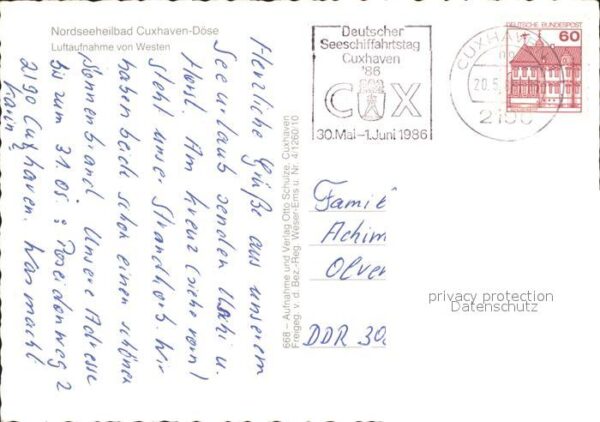 Nordseeheilbad Cuxhaven-Döse
Luftaufnahme von Westen
Herzliche Grüße aus unserem
Seeurlaub senden u.
Horst. Am Kreuz (siehe vorn)
steht unser Strandkorb. Wir
haben beide schon einen schönen
Sonnenbrand. Unsere Adresse
bis zum 31.05.: Poseidonweg 2
2190 Cuxhaven. Was macht
Karin
668 – Aufnahme und Verlag Otto Schulze, Cuxhaven
Freigeg. v. d. Bez.-Reg. Weser-Ems u. Nr. 4/1260/10
Deutscher
Seeschiffahrtstag
Cuxhaven
'86
CUX
30.Mai–1.Juni 1986
CUXHAV
20.5.
2190
DEUTSCHE BUNDESPOST
60
Famil
Achim
Olven
DDR 30
privacy protection
Datenschutz